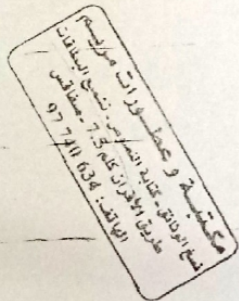 مكتبة و عطـــورات مريم
نسخ الوثائق - كتابة النصوص - تشميع البطاقات
طريق الافران كلم 7.5 - صفاقس
الهاتف: 97 740 634